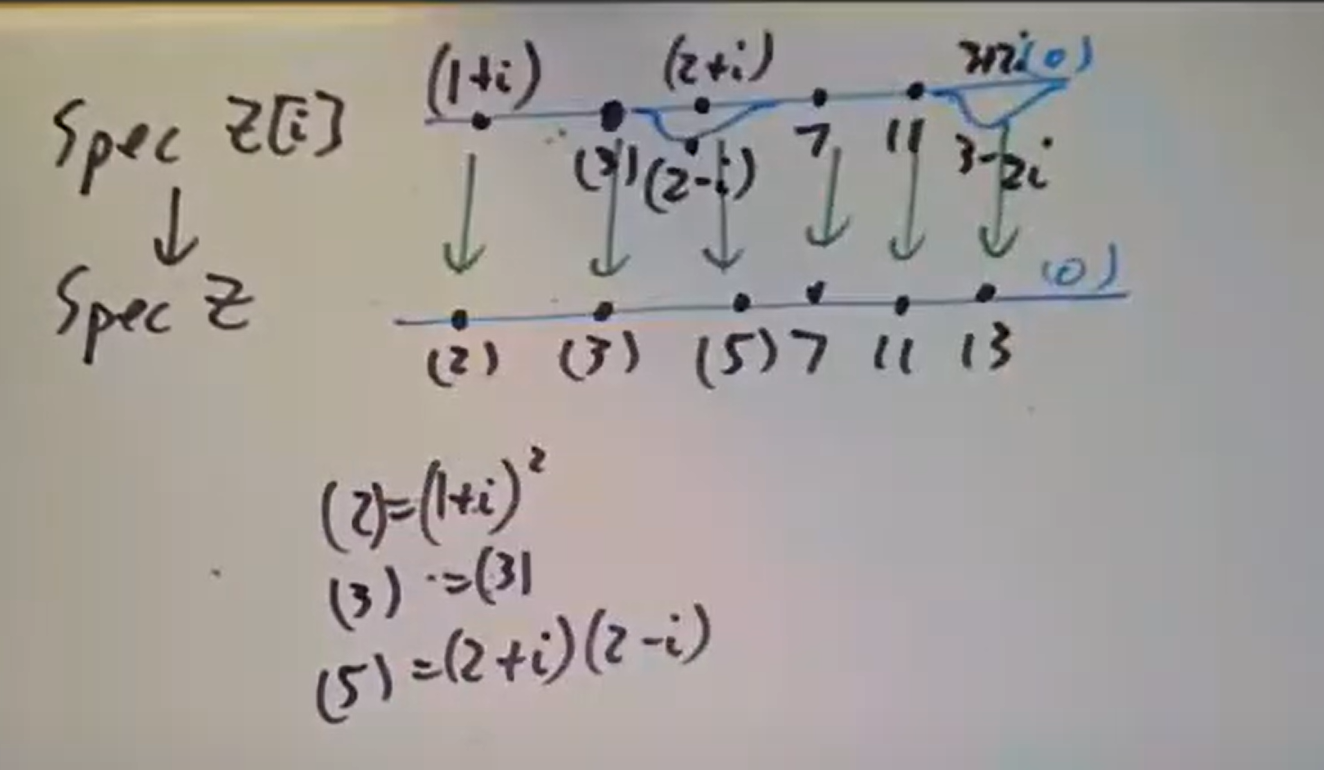 (1+i) (2+i) 3+2i (0)
Spec Z[i]
(3) (2-i) 7 11 3-2i
↓
Spec Z (0)
(2) (3) (5) 7 11 13
(2)=(1+i)²
(3) =(3)
(5)=(2+i)(2-i)